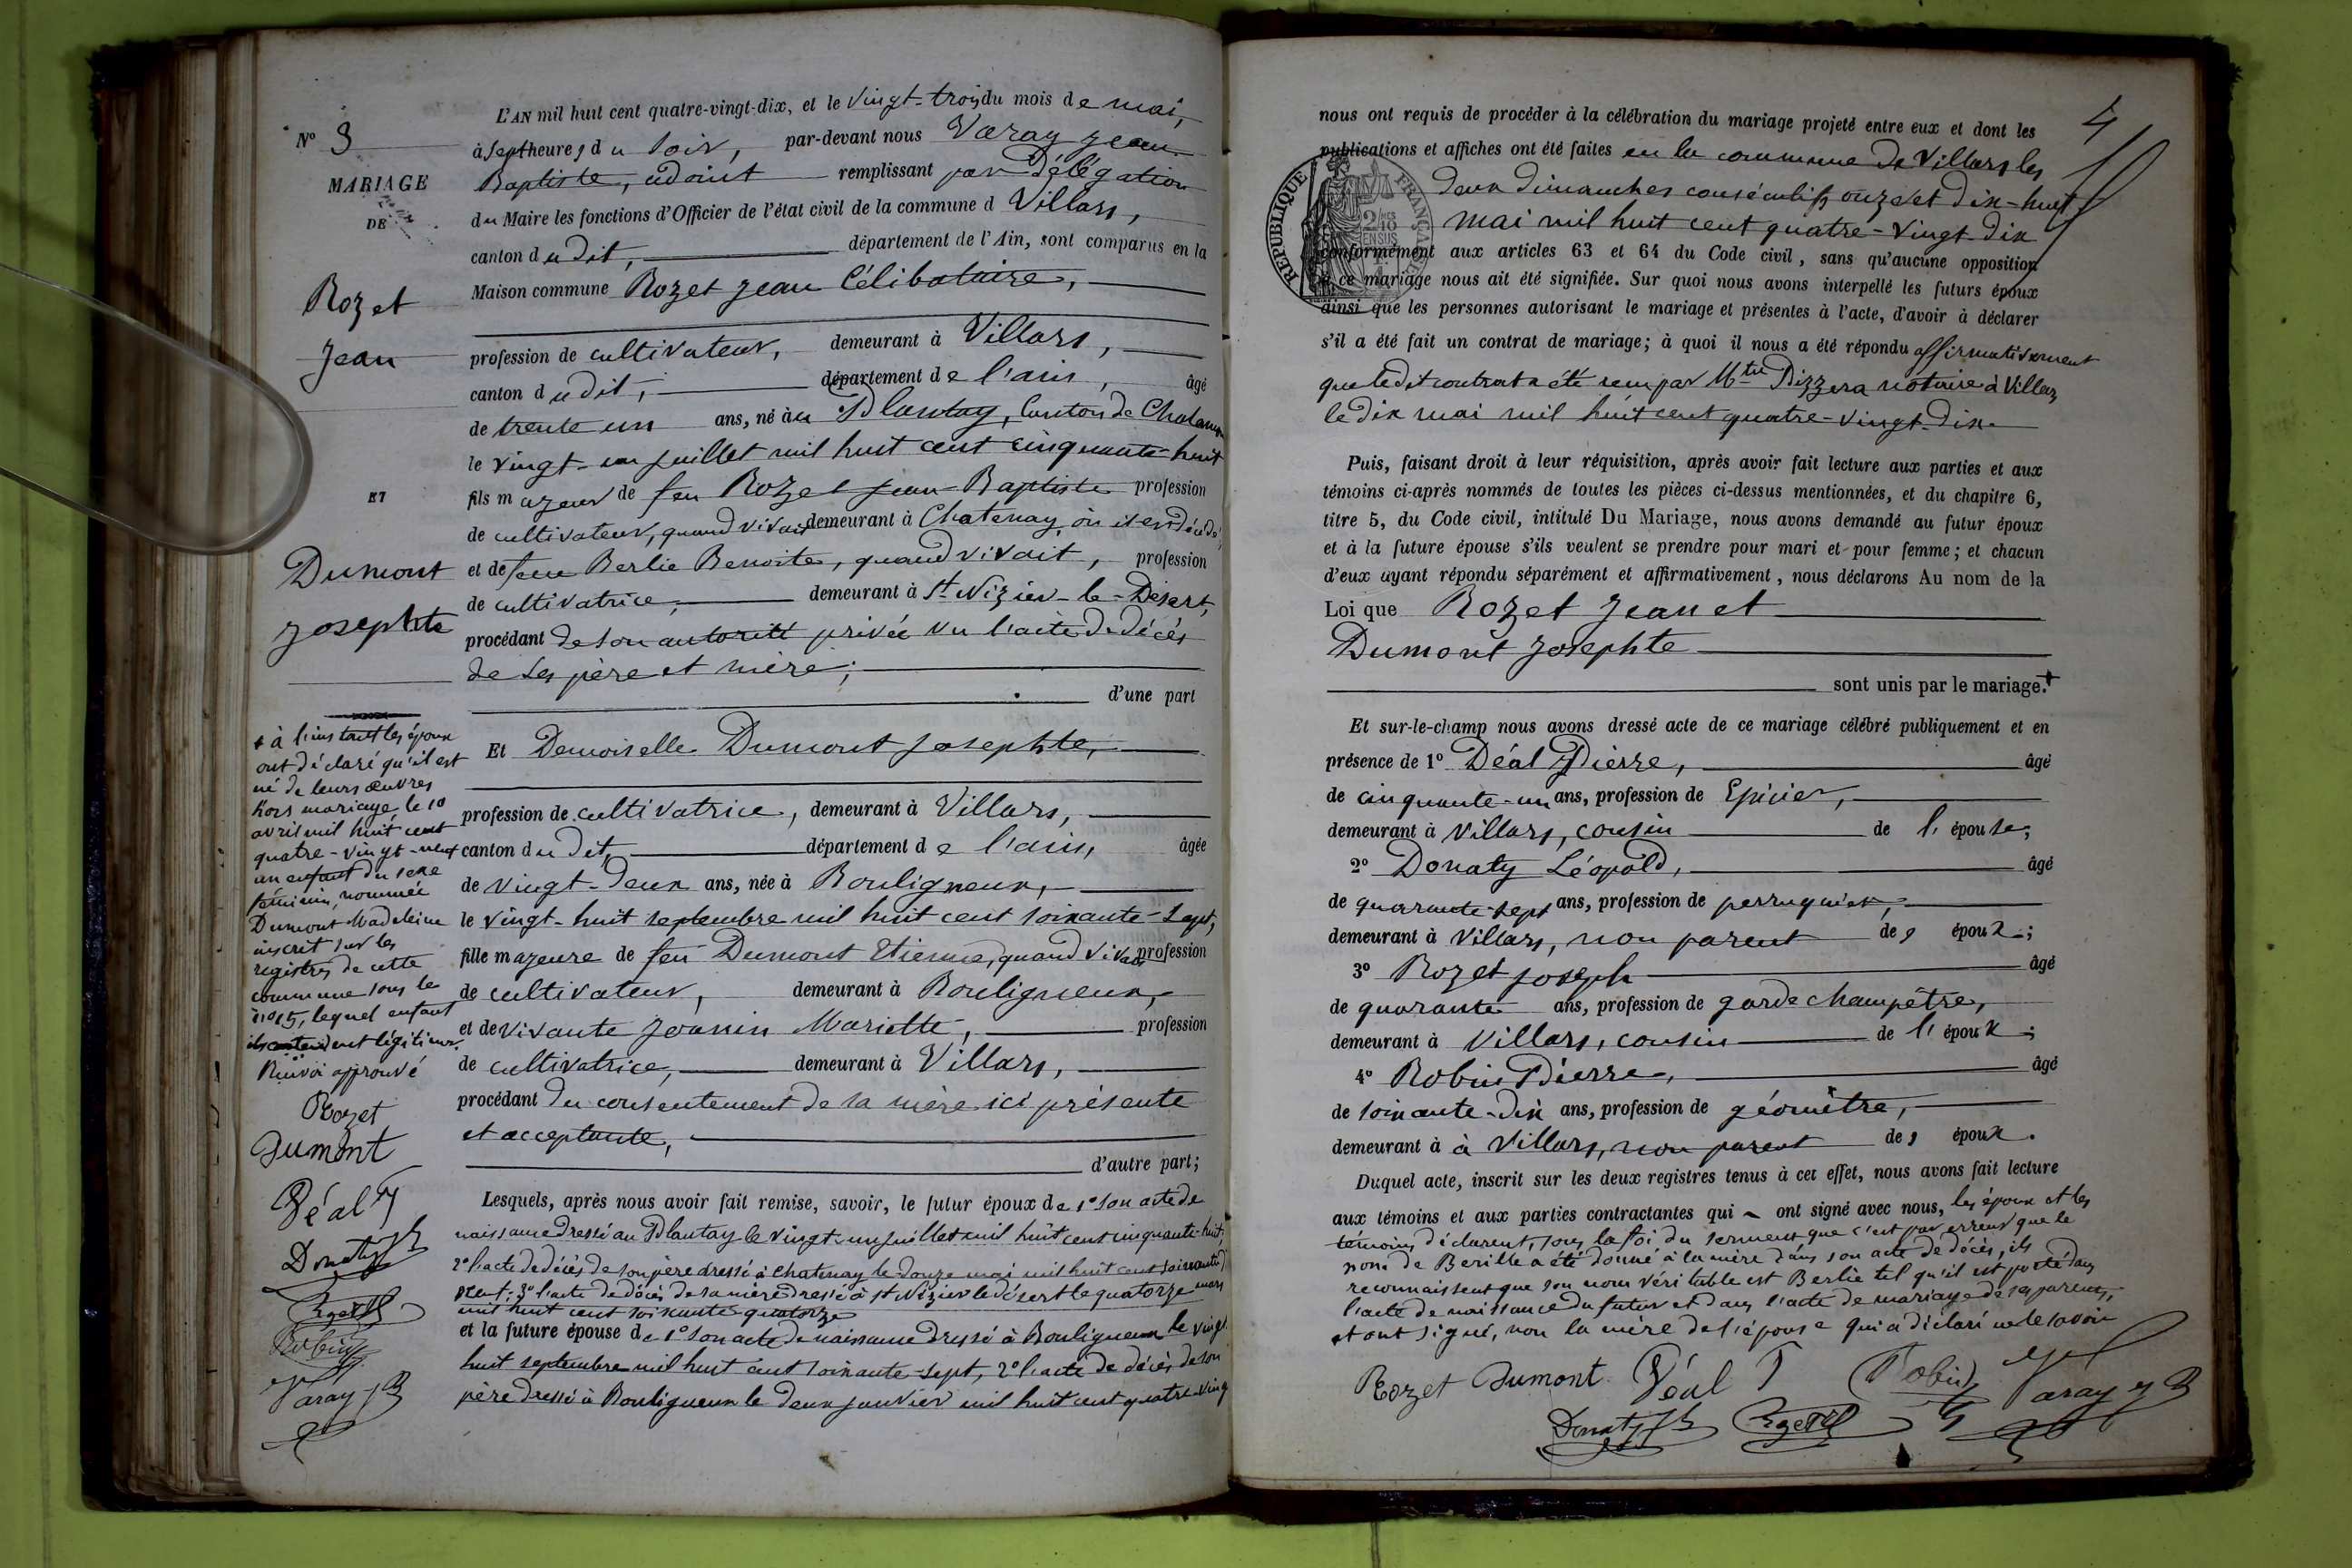 L'AN mil huit cent quatre-vingt-dix, et le vingt-trois du mois de mai,
N° 3
à sept heures du soir, par-devant nous Varay Jean
MARIAGE
Baptiste, adoint remplissant par délégation
DE
du Maire les fonctions d'Officier de l'état civil de la commune d Villars,
canton dudit, département de l'Ain, sont comparus en la
Maison commune Rozet Jean Célibataire,
Rozet
Jean
profession de cultivateur, demeurant à Villars,
canton dudit, département de l'ain, âgé
de trente un ans, né au Plantay, canton de Chalamon
le vingt-un juillet mil huit cent cinquante-huit
ET
fils majeur de feu Rozet Jean-Baptiste profession
de cultivateur, quand vivait demeurant à Chatenay où il est décédé,
Dumont
Josephte
et de feue Berlie Benoite, quand vivait, profession
de cultivatrice, demeurant à St Nizier-le-Désert,
procédant de son autorité privée vu l'acte de décès
de ses père et mère;
d'une part
Et Demoiselle Dumont Josephte,
profession de cultivatrice, demeurant à Villars,
canton dudit, département de l'ain, âgée
de vingt-deux ans, née à Bouligneux,
le vingt-huit septembre mil huit cent soixante-sept,
fille majeure de feu Dumont Etienne, quand vivait profession
de cultivateur, demeurant à Bouligneux,
et de vivante Joanin Mariette, profession
de cultivatrice, demeurant à Villars,
procédant du consentement de sa mère ici présente
et acceptante,
d'autre part;
+ à l'instant les époux
ont déclaré qu'il est
né de leurs œuvres
hors mariage, le 10
avril mil huit cent
quatre-vingt-neuf
un enfant du sexe
féminin, nommée
Dumont Madeleine
inscrit sur les
registres de cette
commune sous le
n° 15, lequel enfant
ils entendent légitimer.
Renvoi approuvé
Rozet
Dumont
Déal P
Donaty
Rozet
Robin
Varay J B
Lesquels, après nous avoir fait remise, savoir, le futur époux de 1° son acte de
naissance dressé au Plantay le vingt-un juillet mil huit cent cinquante-huit;
2° l'acte de décès de son père dressé à Chatenay le douze mai mil huit cent soixante
3° l'acte de décès de sa mère dressé à St Nizier le désert le quatorze mars
mil huit cent soixante quatorze
et la future épouse de 1° son acte de naissance dressé à Bouligneux le vingt
huit septembre mil huit cent soixante-sept, 2° l'acte de décès de son
père dressé à Bouligneux le deux janvier mil huit cent quatre-ving
4
nous ont requis de procéder à la célébration du mariage projeté entre eux et dont les
publications et affiches ont été faites en la commune de Villars les
deux dimanches consécutifs onze et dix-huit
mai mil huit cent quatre-vingt-dix
RÉPUBLIQUE FRANÇAISE
conformément aux articles 63 et 64 du Code civil, sans qu'aucune opposition
à ce mariage nous ait été signifiée. Sur quoi nous avons interpellé les futurs époux
ainsi que les personnes autorisant le mariage et présentes à l'acte, d'avoir à déclarer
s'il a été fait un contrat de mariage; à quoi il nous a été répondu affirmativement
que ledit contrat a été reçu par Mtre Pizzera notaire à Villars
le dix mai mil huit cent quatre-vingt-dix.
Puis, faisant droit à leur réquisition, après avoir fait lecture aux parties et aux
témoins ci-après nommés de toutes les pièces ci-dessus mentionnées, et du chapitre 6,
titre 5, du Code civil, intitulé Du Mariage, nous avons demandé au futur époux
et à la future épouse s'ils veulent se prendre pour mari et pour femme; et chacun
d'eux ayant répondu séparément et affirmativement, nous déclarons Au nom de la
Loi que Rozet Jean et
Dumont Josephte
sont unis par le mariage.+
Et sur-le-champ nous avons dressé acte de ce mariage célébré publiquement et en
présence de 1° Déal Pierre, âgé
de cinquante-un ans, profession de Epicier,
demeurant à Villars, cousin de l'épouse;
2° Donaty Léopold, âgé
de quarante-sept ans, profession de perruquier,
demeurant à Villars, non parent des époux;
3° Rozet Joseph âgé
de quarante ans, profession de garde champêtre,
demeurant à Villars, cousin de l'époux;
4° Robin Pierre, âgé
de soixante-dix ans, profession de géomètre,
demeurant à à Villars, non parent des époux.
Duquel acte, inscrit sur les deux registres tenus à cet effet, nous avons fait lecture
aux témoins et aux parties contractantes qui ont signé avec nous, les époux et les
témoins déclarent, sous la foi du serment que c'est par erreur que le
nom de Berille a été donné à la mère dans son acte de décès, ils
reconnaissent que son nom véritable est Berlie tel qu'il est porté dans
l'acte de naissance du futur et dans l'acte de mariage de ses parents,
et ont signé, non la mère de l'épouse qui a déclaré ne le savoir
Rozet Dumont Déal P Robin Varay J B
Donaty Rozet